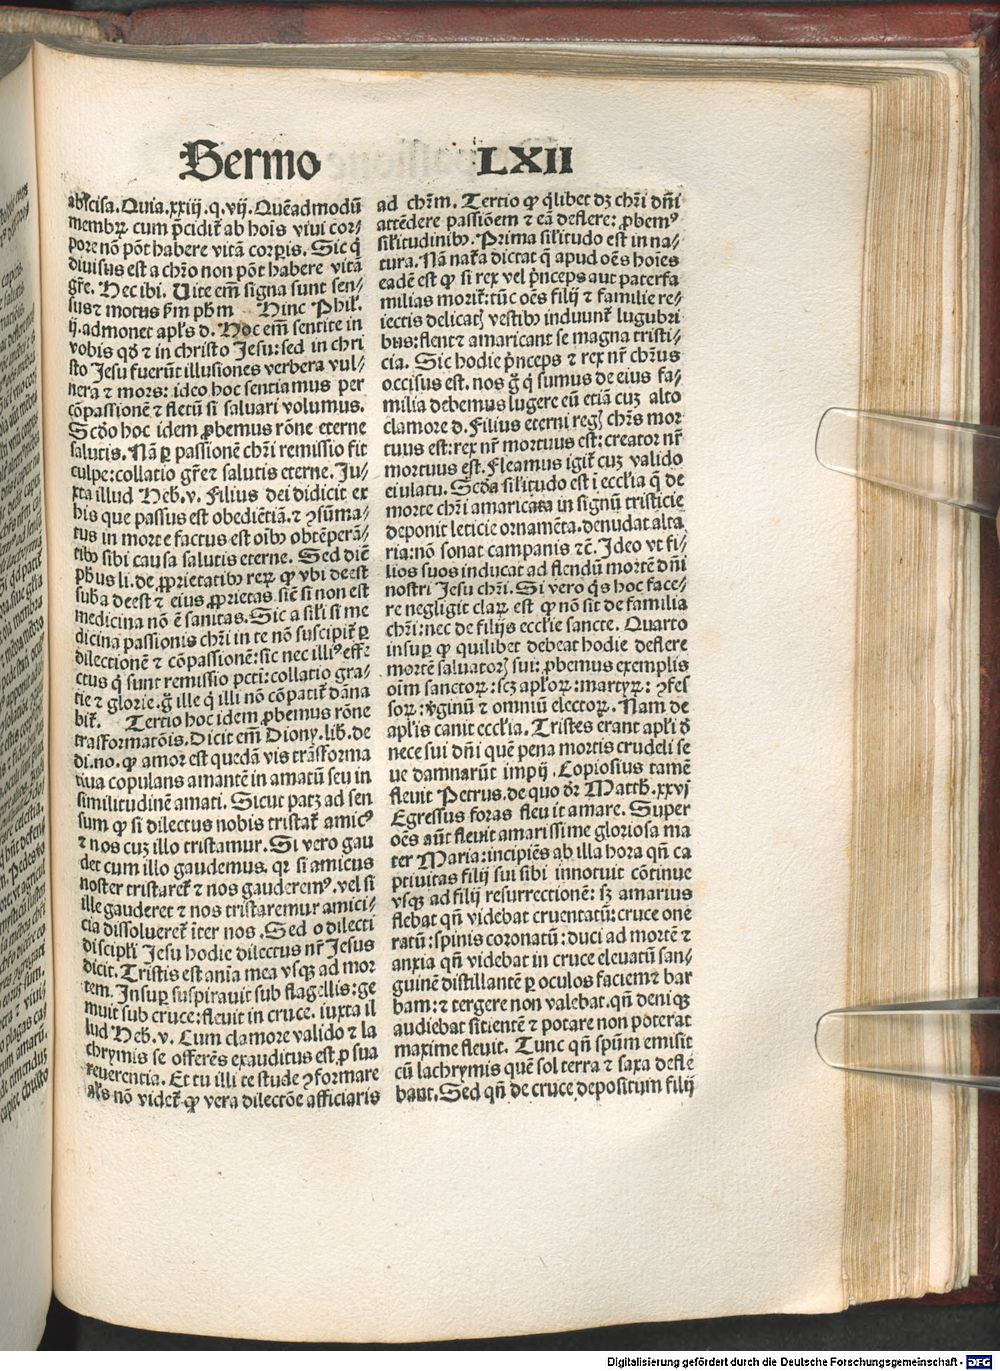 Sermo LXII
abscisa. Quia.xxiij.q.vij. Quēadmodū
membrꝝ cum p̄cidit̄ ab hoīs viui cor⸗
pore nō pōt habere vitā corpis. Sic q̄
diuisus est a chr̄o non pōt habere vitā
gr̄e. Hec ibi. Uite em̄ signa sunt sen⸗
sus ⁊ motus ẜm pħm Hinc Phil'.
ij. admonet apl's d. Hoc em̄ sentite in
vobis qḋ ⁊ in christo Jesu: sed in chri
sto Jesu fuerūt illusiones verbera vul⸗
nera ⁊ mors: ideo hoc sentiamus per
cōpassionē ⁊ fletū si saluari volumus.
Scḋo hoc idem ꝓbemus rōne eterne
salutis. Nā ꝑ passionē chr̄i remissio fit
culpe: collatio gr̄e ⁊ salutis eterne. Ju⸗
xta illud Heb. v. Filius dei didicit ex
his que passus est obediētiā. ⁊ ꝯsūma⸗
tus in morte factus est oībꝰ obtēperā⸗
tibꝰ sibi causa salutis eterne. Sed diē
pħus li. de ꝓprietatibꝰ reꝝ ꝙ vbi deest
sub̄a deest ⁊ eius ꝓprietas. sic̄ si non est
medicina nō ē sanitas. Sic a sil'i si me
dicina passionis chr̄i in te nō suscipit̄ ꝑ
dilectionē ⁊ cōpassionē: sic nec illiꝰ effe
ctus q̄ sunt remissio pcti: collatio gra⸗
tie ⁊ glorie. g̊ ille q̄ illi nō cōpatit̄ dāna
bit̄. Tertio hoc idem ꝓbemus rōne
trāsformatōis. Dicit em̄ Diony. lib. de
di. no. ꝙ amor est quedā vis trāsforma
tiua copulans amantē in amatū seu in
similitudinē amati. Sicut patꝫ ad sen
sum ꝙ si dilectus nobis tristat̄ amicꝰ
⁊ nos cuꝫ illo tristamur. Si vero gau
det cum illo gaudemus. qr si amicus
noster tristaret̄ ⁊ nos gauderemꝰ. vel si
ille gauderet ⁊ nos tristaremur amici⸗
cia dissolueret̄ īter nos. Sed o dilecti
discipl'i Jesu hodie dilectus nr̄ Jesus
dicit. Tristis est aīa mea vsqꝫ ad mor
tem. Insuꝑ suspirauit sub flagellis: ge
muit sub cruce: fleuit in cruce. iuxta il
lud Heb. v. Cum clamore valido ⁊ la
chrymis se offerēs exauditus est. ꝓ sua
reuerentia. Et tu illi te stude ꝯformare
al's nō videt̄ ꝙ vera dilectōe afficiaris
ad chr̄m. Tertio ꝙ q̄libet dꝫ chr̄i dn̄i
attēdere passiōem ⁊ eā deflere: ꝓbemꝰ
sil'itudinibꝰ. Prima sil'itudo est in na⸗
tura. Nā nat̄a dictat q̄ apud oēs hoīes
eadē est ꝙ si rex vel p̄nceps aut paterfa
milias morit̄: tūc oēs filij ⁊ familie re⸗
iectis delicatꝭ vestibꝰ induunt̄ lugubri
bus: flent ⁊ amaricant se magna tristi⸗
cia. Sic hodie p̄nceps ⁊ rex nr̄ chr̄us
occisus est. nos g̊ q̄ sumus de eius fa⸗
milia debemus lugere eū etiā cuꝫ alto
clamore d. Filius eterni regꝭ chr̄s mor
tuus est: rex nr̄ mortuus est: creator nr̄
mortuus est. Fleamus igit̄ cuꝫ valido
eiulatu. Scḋa sil'itudo est ī eccl'ia q̄ de
morte chr̄i amaricata in signū tristicie
deponit leticie ornamēta. denudat alta
ria: nō sonat campanis ⁊c̄. Ideo vt fi⸗
lios suos inducat ad flendū mortē dn̄i
nostri Jesu chr̄i. Si vero q̄s hoc face⸗
re negligit claꝝ est ꝙ nō sit de familia
chr̄i: nec de filijs eccl'ie sancte. Quarto
insuꝑ ꝙ quilibet debeat hodie deflere
mortē saluatorꝭ sui: ꝓbemus exemplis
oīm sanctoꝝ: scꝫ apl'oꝝ: martyꝝ: ꝯfes
soꝝ: v̄ginū ⁊ omniū electoꝝ. Nam de
apl'is canit eccl'ia. Tristes erant apl'i ḋ
nece sui dn̄i quē pena mortis crudeli se
ue damnarūt impij. Copiosius tamē
fleuit Petrus. de quo dr̄ Matth. xxvj
Egressus foras fleuit amare. Super
oēs aūt fleuit amarissime gloriosa ma
ter Maria: incipiēs ab illa hora qn̄ ca
ptiuitas filij sui sibi innotuit cōtinue
vsqꝫ ad filij resurrectionē: sꝫ amarius
flebat qn̄ videbat cruentatū: cruce one
ratū: spinis coronatū: duci ad mortē ⁊
anxia qn̄ videbat in cruce eleuatū san⸗
guinē distillantē ꝑ oculos faciem ⁊ bar
bam: ⁊ tergere non valebat. qn̄ deniqꝫ
audiebat sitientē ⁊ potare non poterat
maxime fleuit. Tunc qn̄ spūm emisit
cū lachrymis quē sol terra ⁊ saxa defle
bant. Sed qn̄ de cruce depositum filij
Digitalisierung gefördert durch die Deutsche Forschungsgemeinschaft - DFG